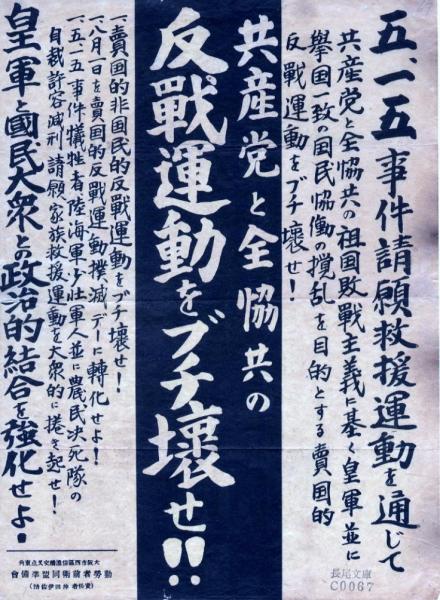 五、一五事件請願救援運動を通じて
共産党と全協共の祖国敗戰主義に基く皇軍並に
擧国一致の国民協働の撹乱を目的とする賣国的
反戰運動をブチ壊せ！
共産党と全協共の
反戰運動をブチ壊せ!!
一、賣国的非国民的反戰運動をブチ壊せ！
一、八月一日を賣国的反戰運動撲滅デーに轉化せよ！
一、五・一五事件犠牲者陸海軍少壮軍人並に農民決死隊の
自裁許容減刑請願家族救援運動を大衆的に捲き起せ！
皇軍と國民大衆との政治的結合を強化せよ！
大阪市西區信濃橋交叉点東角
勤勞者前衛同盟準備會
長尾文庫
C0067